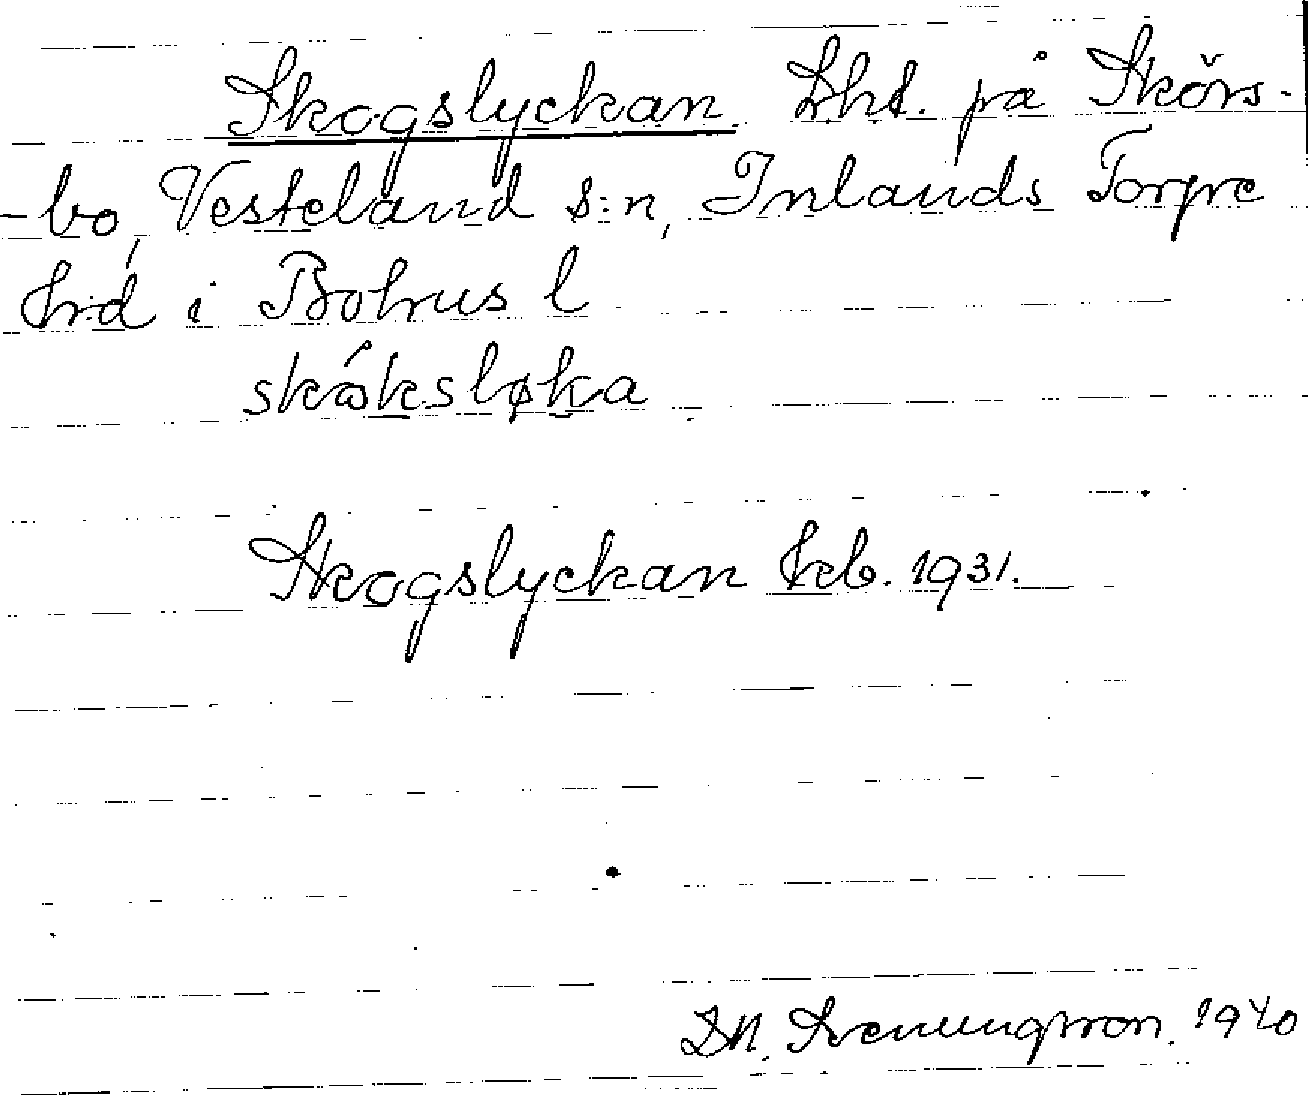 Skogslyckan. Lht. på Skörs-
-bo, Vesteland s:n, Inlands Torpe
hrd i Bohus l
skåksløka
Skogslyckan Ekb. 1931.
D.N. Svenungsson. 1940